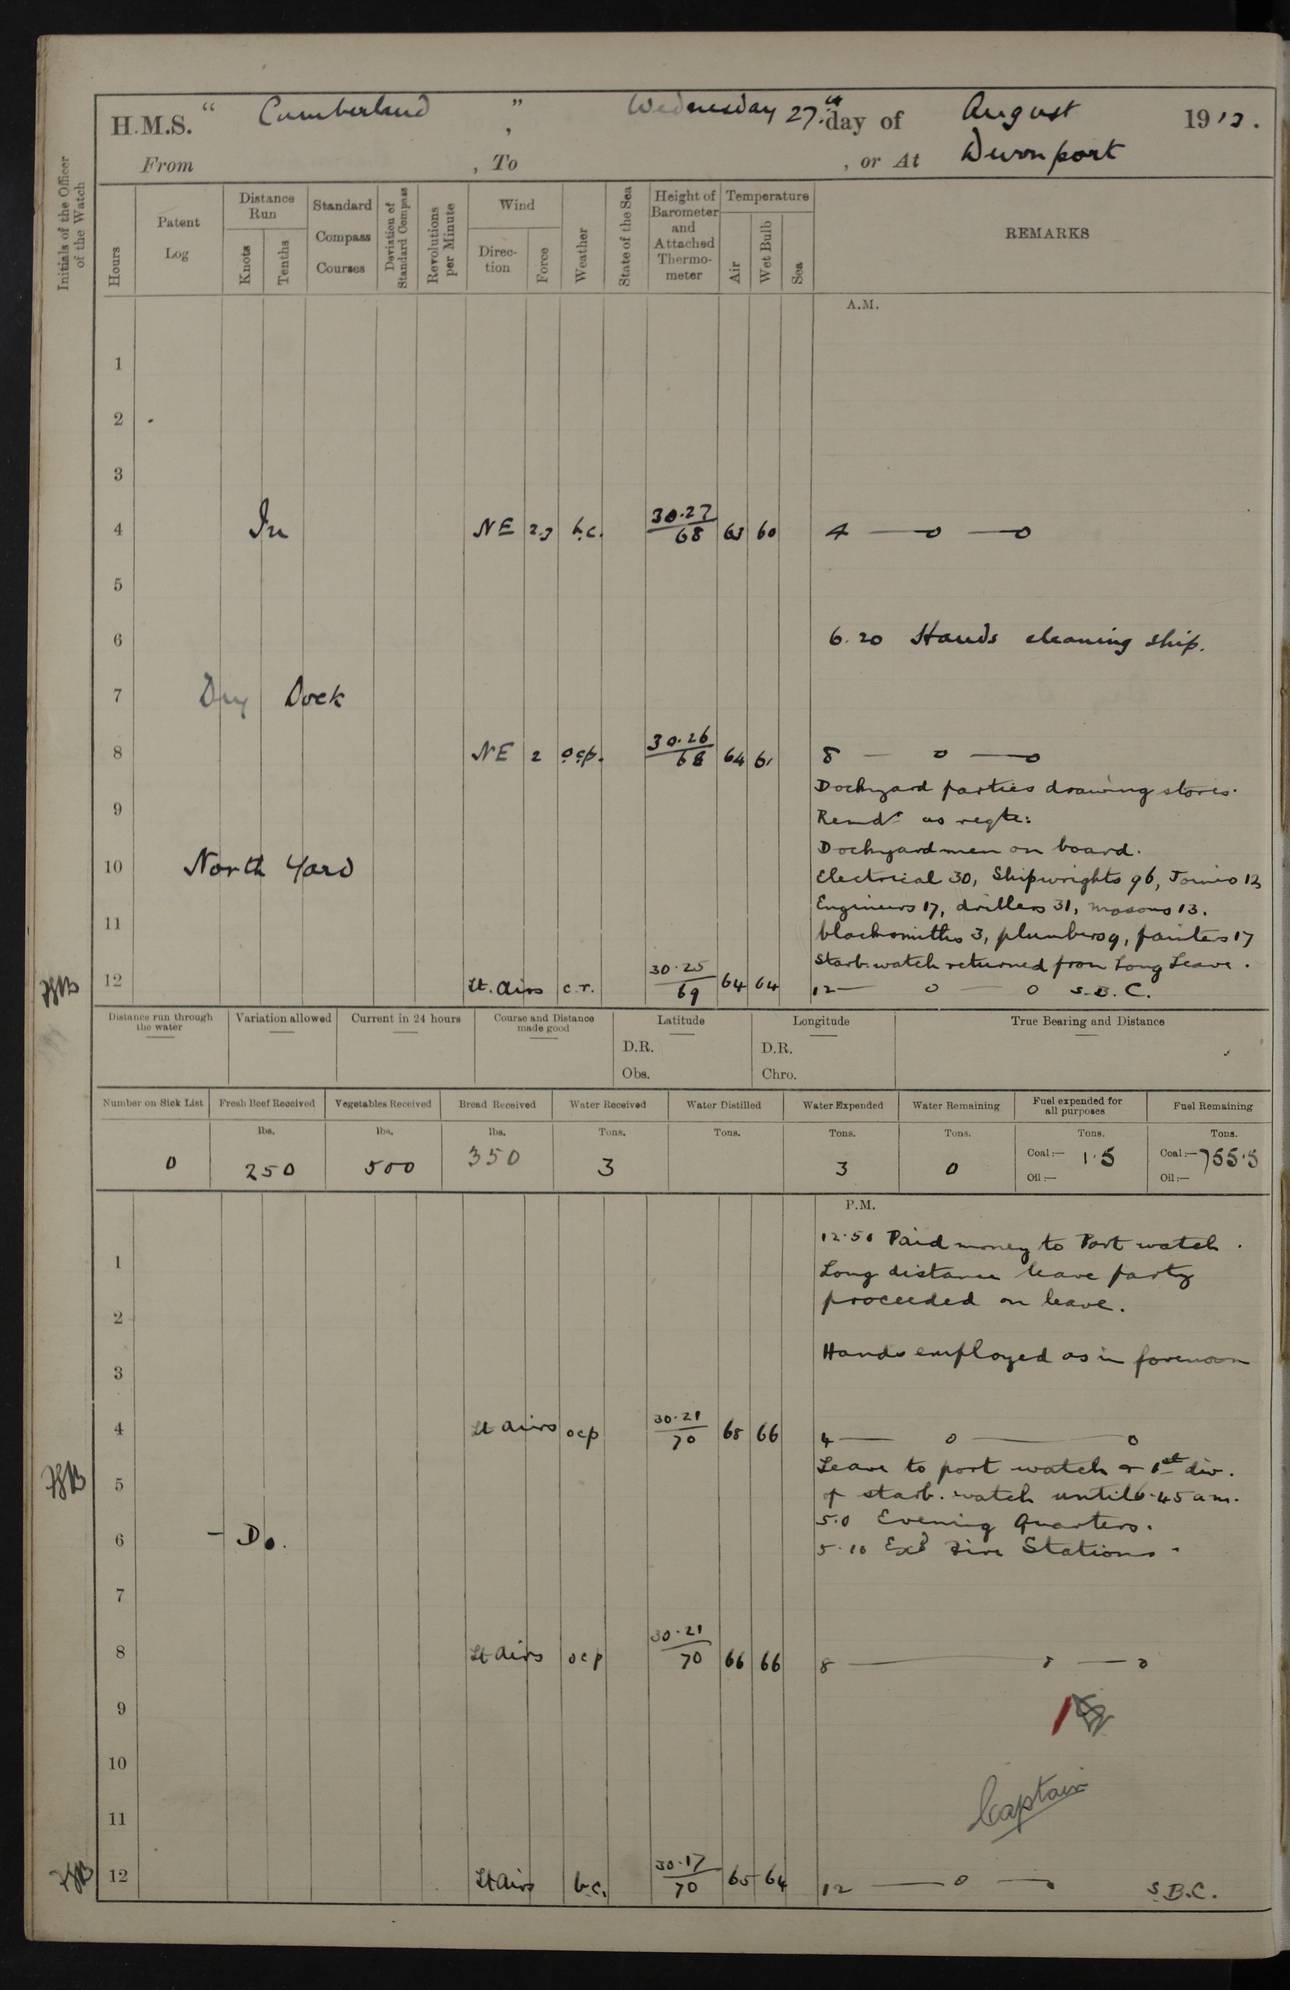 H.M.S. " Cumberland ", Wednesday 27.th day of August 1913.
From , To , or At Devonport
Initials of the Officer of the Watch
Hours
Patent Log
Distance Run
Knots
Tenths
Standard Compass Courses
Deviation of Standard Compass
Revolutions per Minute
Wind
Direction
Force
Weather
State of the Sea
Height of Barometer and Attached Thermometer
Temperature
Air
Wet Bulb
Sea
REMARKS
A.M.
1
2
3
4 In NE 2.3 b.c. 30.27 68 63 60 4 — o — o
5
6 6.20 Hands cleaning ship.
7 Dry Dock
8 NE 2 ocp. 30.26 68 64 61 8 — o — o
Dockyard parties drawing stores.
9 Remdr as reqte:
Dockyardmen on board.
10 North Yard Electrical 30, Shipwrights 96, Joiners 12
Engineers 17, drillers 31, masons 13.
11 blacksmiths 3, plumbers 9, painters 17
Starb. watch returned from Long Leave.
12 Lt. airs c.r. 30.25 69 64 64 12 — o — o S.B.C.
Distance run through the water
Variation allowed
Current in 24 hours
Course and Distance made good
Latitude
D.R.
Obs.
Longitude
D.R.
Chro.
True Bearing and Distance
Number on Sick List Fresh Beef Received Vegetables Received Bread Received Water Received Water Distilled Water Expended Water Remaining Fuel expended for all purposes Fuel Remaining
lbs. lbs. lbs. Tons. Tons. Tons. Tons. Tons. Tons.
0 250 500 350 3 3 0 Coal:— 1.5 Coal:— 755.5
Oil:— Oil:—
P.M.
12.50 Paid money to Port watch.
1 Long distance leave party
2 proceeded on leave.
Hands employed as in forenoon
3
4 Lt airs ocp 30.21 70 68 66 4 — o — o
Leave to port watch & 1st div.
5 of starb. watch until 6.45 am.
5.0 Evening Quarters.
6 - Do. 5.10 Exd Fire Stations.
7
8 Lt airs ocp 30.21 70 66 66 8 — o — o
9
10
Captain
11
12 Lt airs b.c. 30.17 70 65 64 12 — o — o S.B.C.